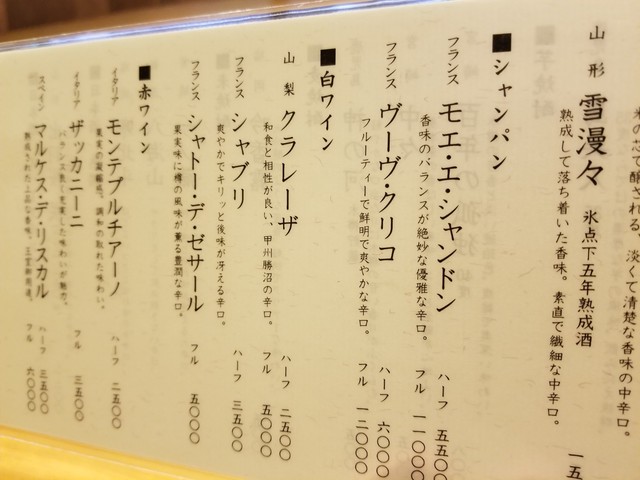 米の芯
醸される、淡くて清楚な香味の中辛口。
山形 雪漫々 氷点下五年熟成酒
熟成して落ち着いた香味。素直で繊細な中辛口。
一五
■シャンパン
フランス モエ・エ・シャンドン ハーフ 五五〇〇
香味のバランスが絶妙な優雅な辛口。 フル 一一〇〇〇
フランス ヴーヴ・クリコ ハーフ 六〇〇〇
フルーティーで鮮明で爽やかな辛口。 フル 一二〇〇〇
■白ワイン
山梨 クラレーザ ハーフ 二五〇〇
和食と相性が良い、甲州勝沼の辛口。 フル 五〇〇〇
フランス シャブリ ハーフ 三五〇〇
爽やかでキリッと後味が冴える辛口。
フランス シャトー・デ・ゼサール フル 五〇〇〇
果実味に樽の風味が薫る豊潤な辛口。
■赤ワイン
イタリア モンテプルチアーノ ハーフ 二五〇〇
果実の凝縮感、調和の取れた味わい。
イタリア ザッカニーニ フル 三五〇〇
バランス良く充実した味わいが魅力。
スペイン マルケス・デ・リスカル ハーフ 三五〇〇
熟成された上品な香味。王室御用達。 フル 六〇〇〇